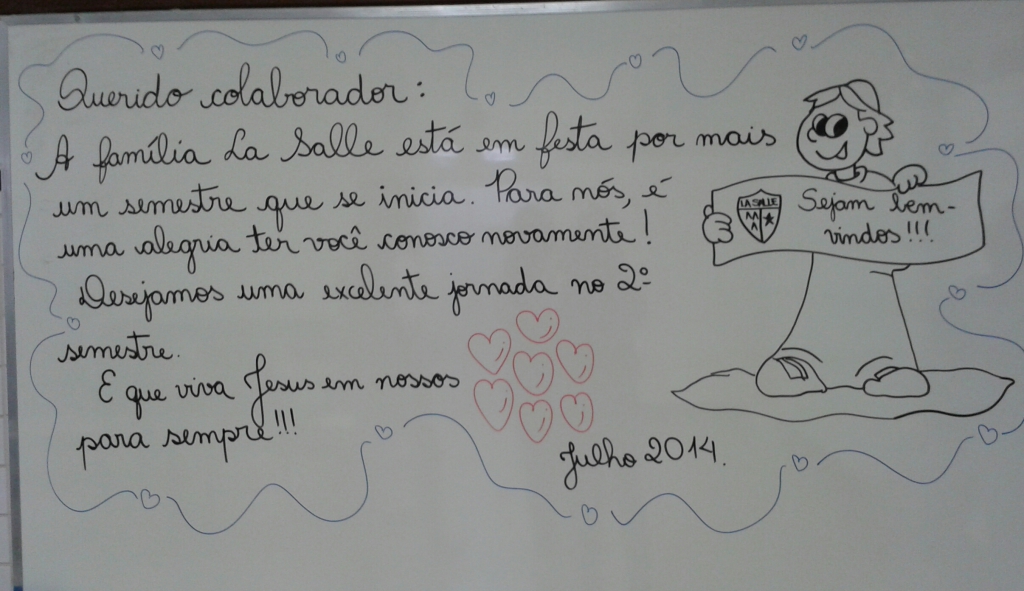 Querido colaborador:
A família La Salle está em festa por mais
um semestre que se inicia. Para nós, é
uma alegria ter você conosco novamente!
Desejamos uma excelente jornada no 2º
semestre.
E que viva Jesus em nossos
para sempre!!!
Julho 2014.
LA SALLE
Sejam bem-
vindos!!!